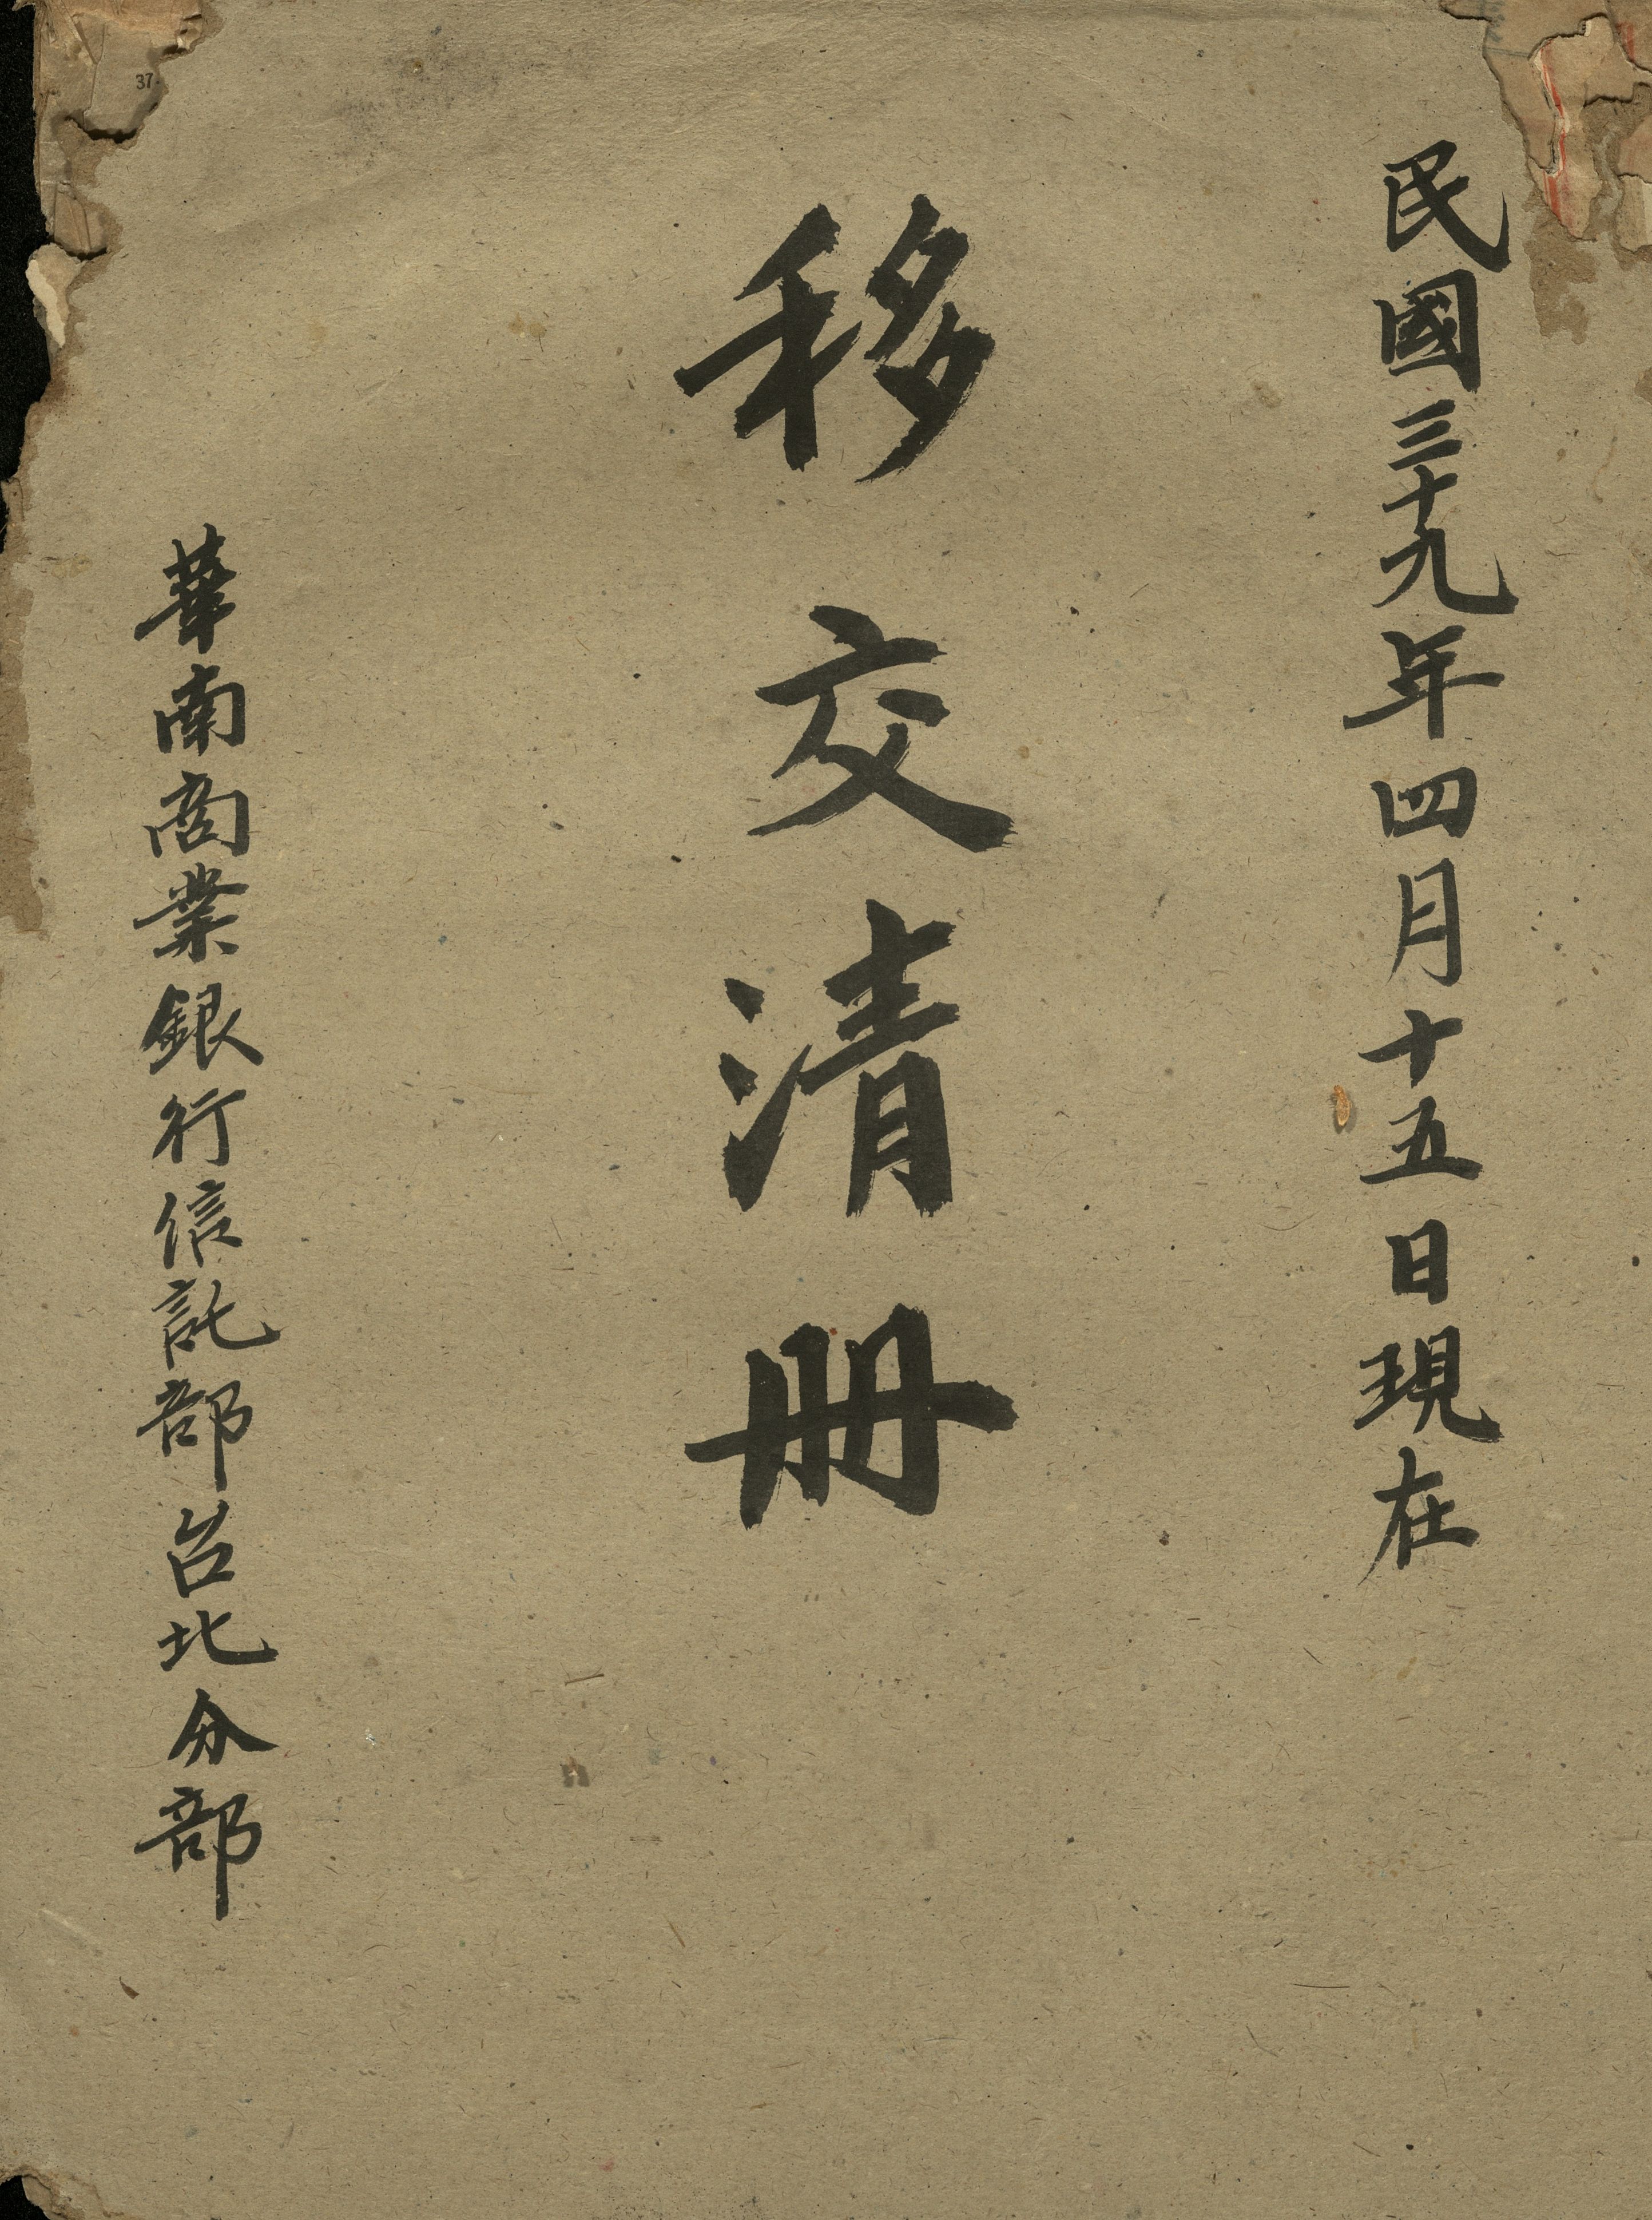 民國三十九年四月十五日現在
移交清册
華南商業銀行信託部台北分部
37